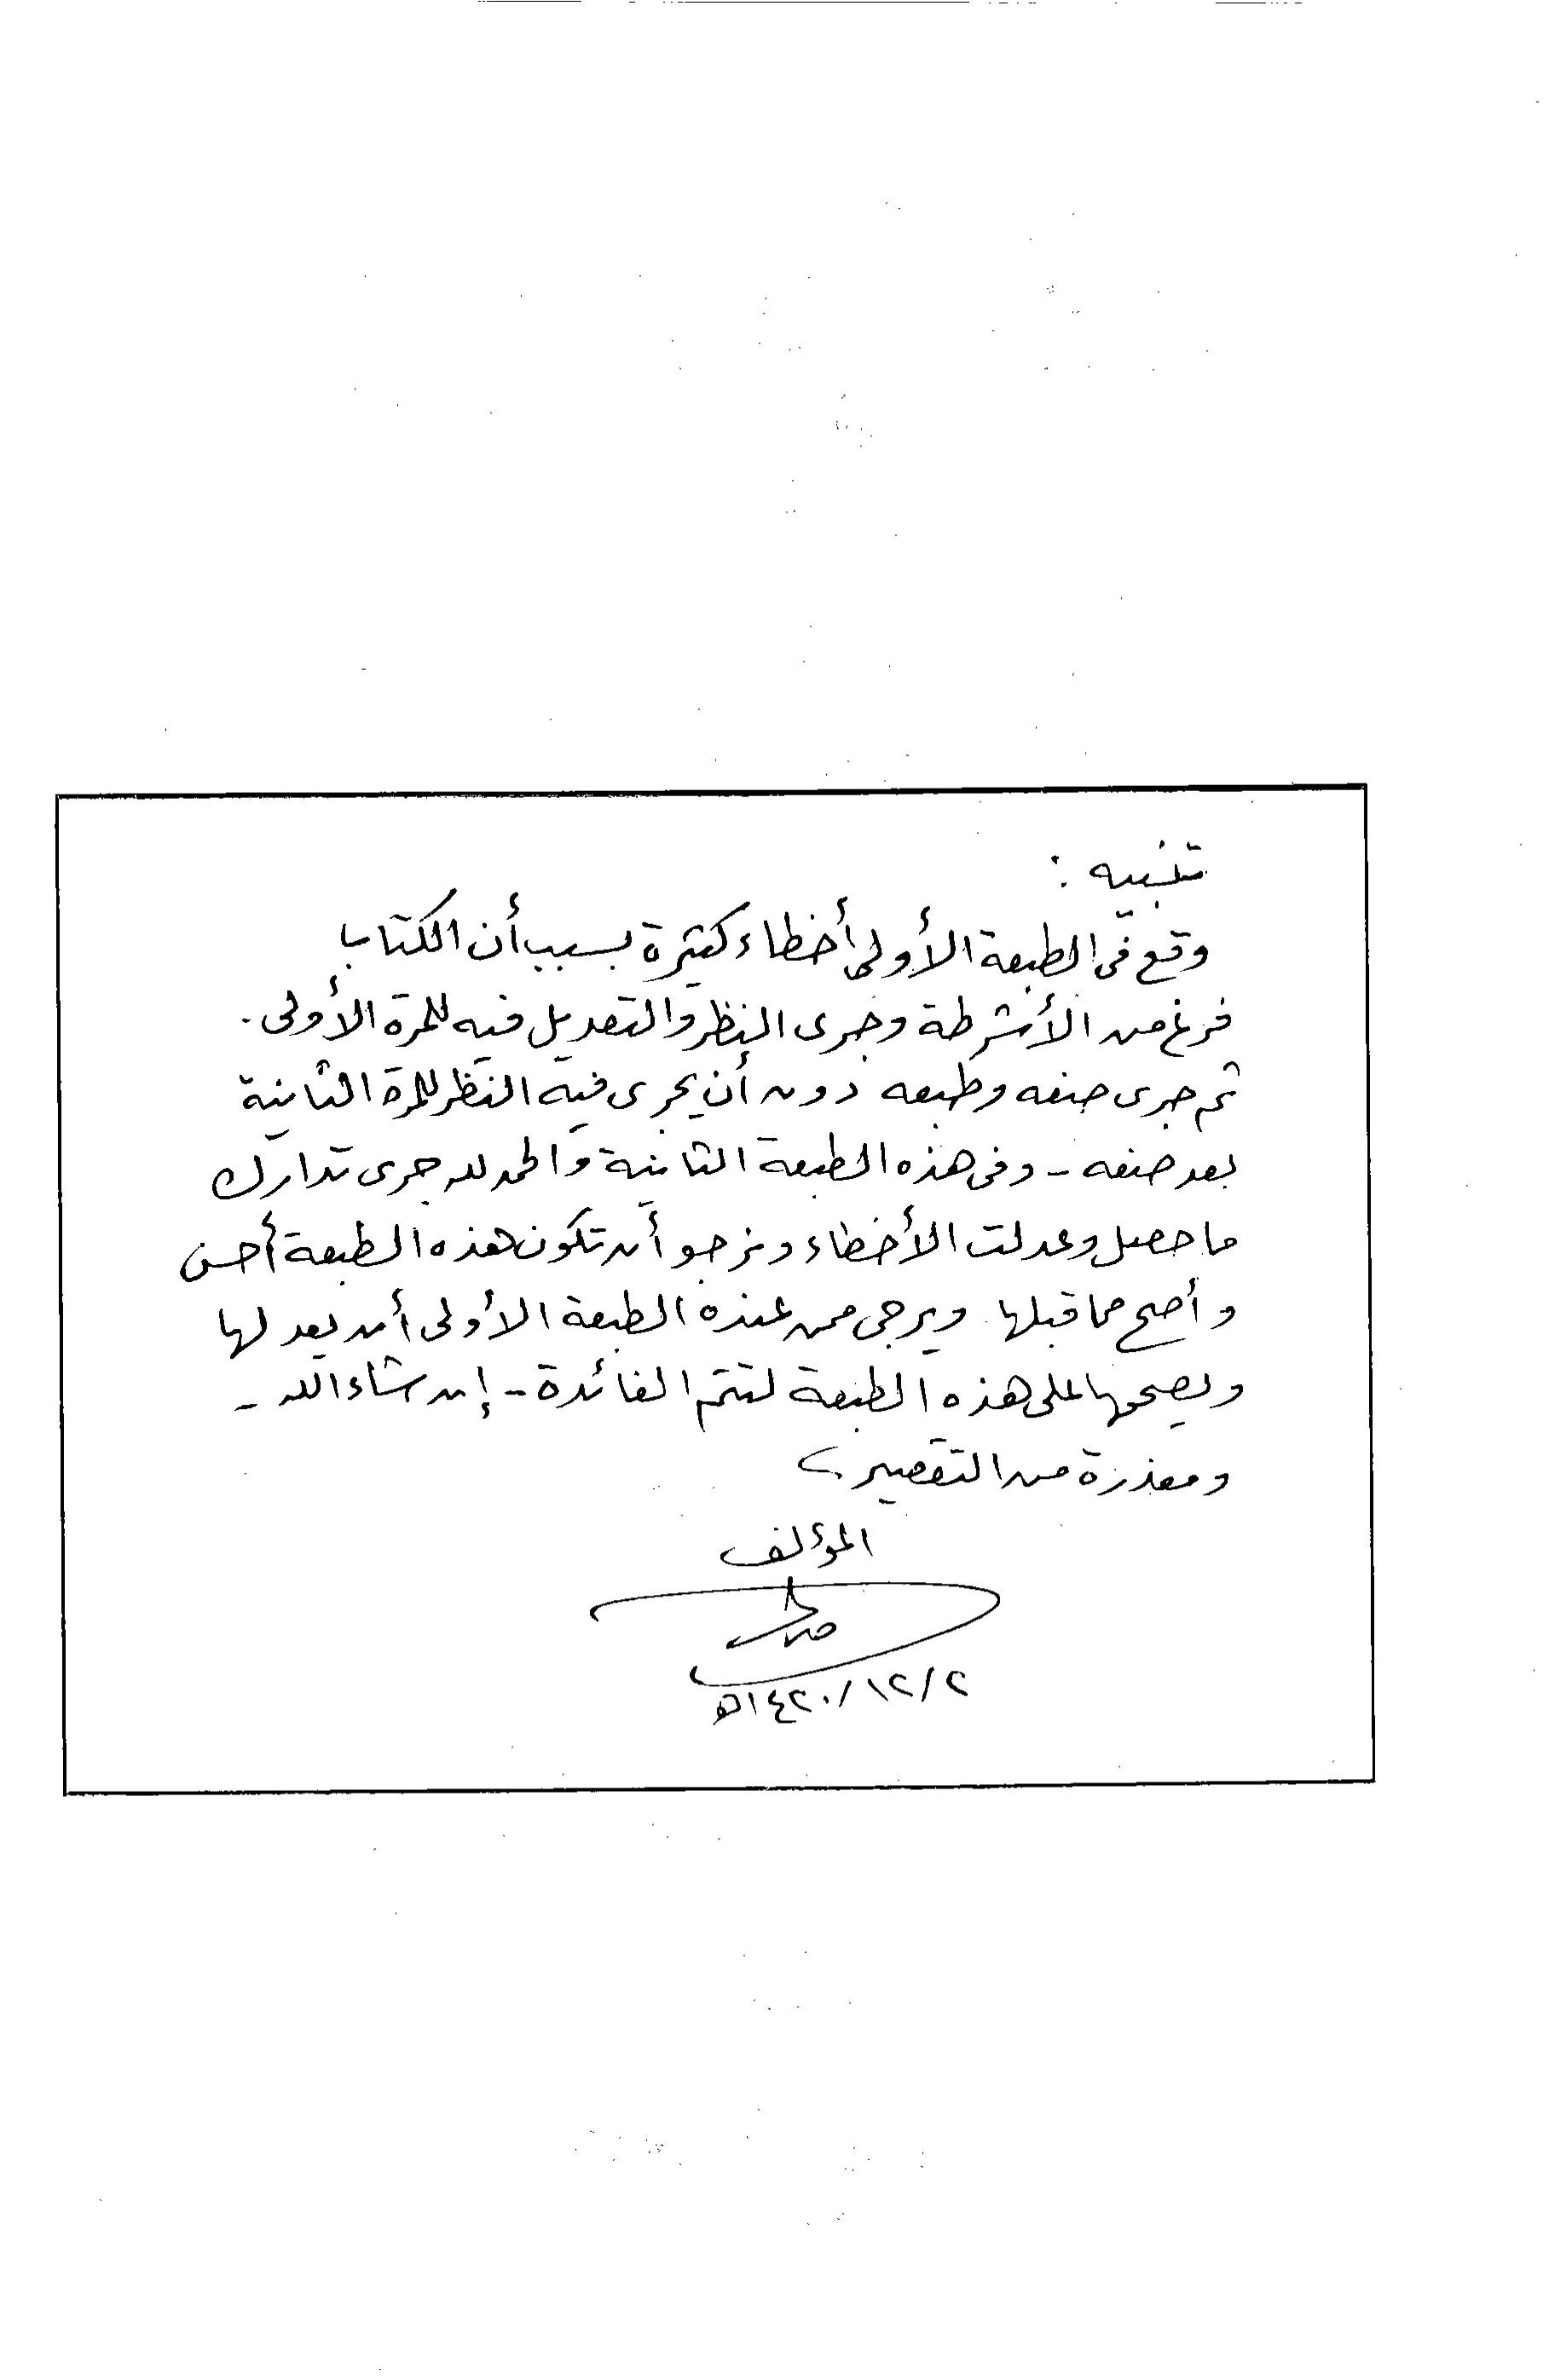 تنبيه :
وقع فى الطبعة الأولى أخطاء كثيرة بسبب أن الكتاب
فرغ من الأشرطة وجرى النظر والتعديل فيه للمرة الأولى .
ثم جرى صفه وطبعه دون أن يجرى فيه النظر للمرة الثانية
بعد صفه - وفى هذه الطبعة الثانية والحمد لله جرى تدارك
ما حصل وعدلت الأخطاء ونرجو أن تكون هذه الطبعة أحسن
وأصح مما قبلها ويرجى ممن عنده الطبعة الأولى أن يعدلها
ويصححها على هذه الطبعة لتتم الفائدة - إن شاء الله -
ومعذرة من التقصير ،
المؤلف
٢/١٢/١٤٢٠هـ